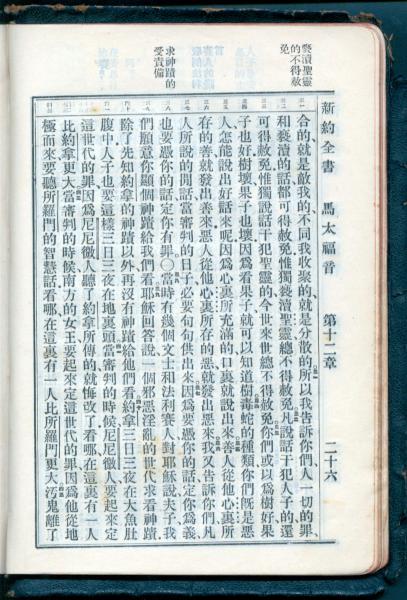 新約全書 馬太福音 第十二章 二十六
褻瀆聖靈
的不得赦
免
求神蹟的
受責備
合的、就是敵我的、不同我收聚的、就是分散的、所以我告訴你們、人一切的罪、
和褻瀆的話、都可得赦免、惟獨褻瀆聖靈、總不得赦免、凡說話干犯人子的、還
可得赦免、惟獨說話干犯聖靈的、今世來世總不得赦免、你們或以爲樹好果
子也好、樹壞果子也壞、因爲看果子、就可以知道樹、毒蛇的種類、你們旣是惡
人、怎能說出好話來呢、因爲心裏所充滿的、口裏就說出來、善人從他心裏所
存的善、就發出善來、惡人從他心裏所存的惡、就發出惡來、我又告訴你們、凡
人所說的閒話、當審判的日子、必要句句供出來、因爲要憑你的話、定你爲義、
也要憑你的話、定你有罪○當時有幾個文士和法利賽人、對耶穌說、夫子、我
們願意你顯個神蹟給我們看、耶穌回答說、一個邪惡淫亂的世代、求看神蹟、
除了先知約拿的神蹟以外、再沒有神蹟給他們看、約拿三日三夜在大魚肚
腹中、人子也要這樣三日三夜在地裏頭、當審判的時候、尼尼微人、要起來定
這世代的罪、因爲尼尼微人聽了約拿所傳的、就悔改了、看哪、在這裏有一人
比約拿更大、當審判的時候、南方的女王、要起來定這世代的罪、因爲他從地
極而來、要聽所羅門的智慧話、看哪、在這裏有一人比所羅門更大、汚鬼離了